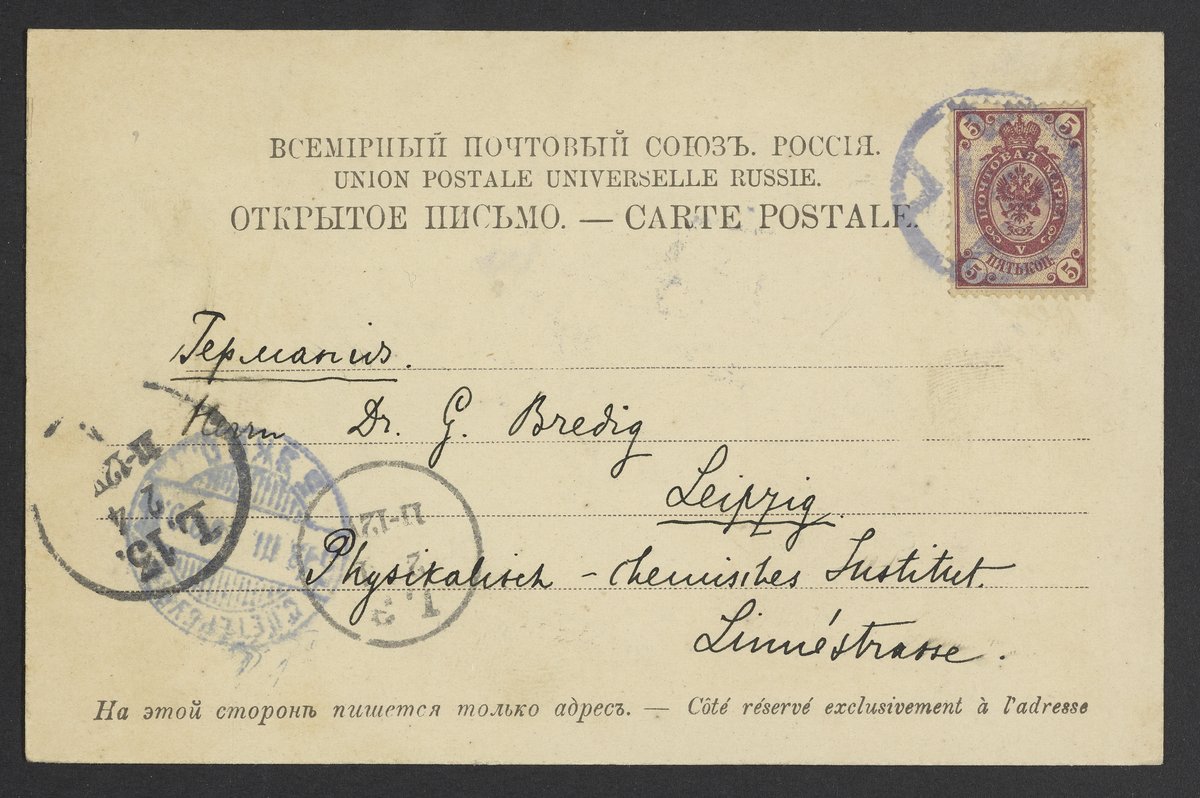 ВСЕМІРНЫЙ ПОЧТОВЫЙ СОЮЗЪ. РОССІЯ.
UNION POSTALE UNIVERSELLE RUSSIE.
ОТКРЫТОЕ ПИСЬМО. — CARTE POSTALE.
5 5
ПОЧТОВАЯ МАРКА
V
ПЯТЬ КОП.
5 5
Германия.
Herrn Dr. G. Bredig
Leipzig.
Physikalisch - chemisches Institut.
Linnéstrasse.
11-12V
2
4
L. 13.
11-12V
2
L. 3
С.ПЕТЕРБУРГ
На этой сторонѣ пишется только адресъ. — Côté réservé exclusivement à l'adresse